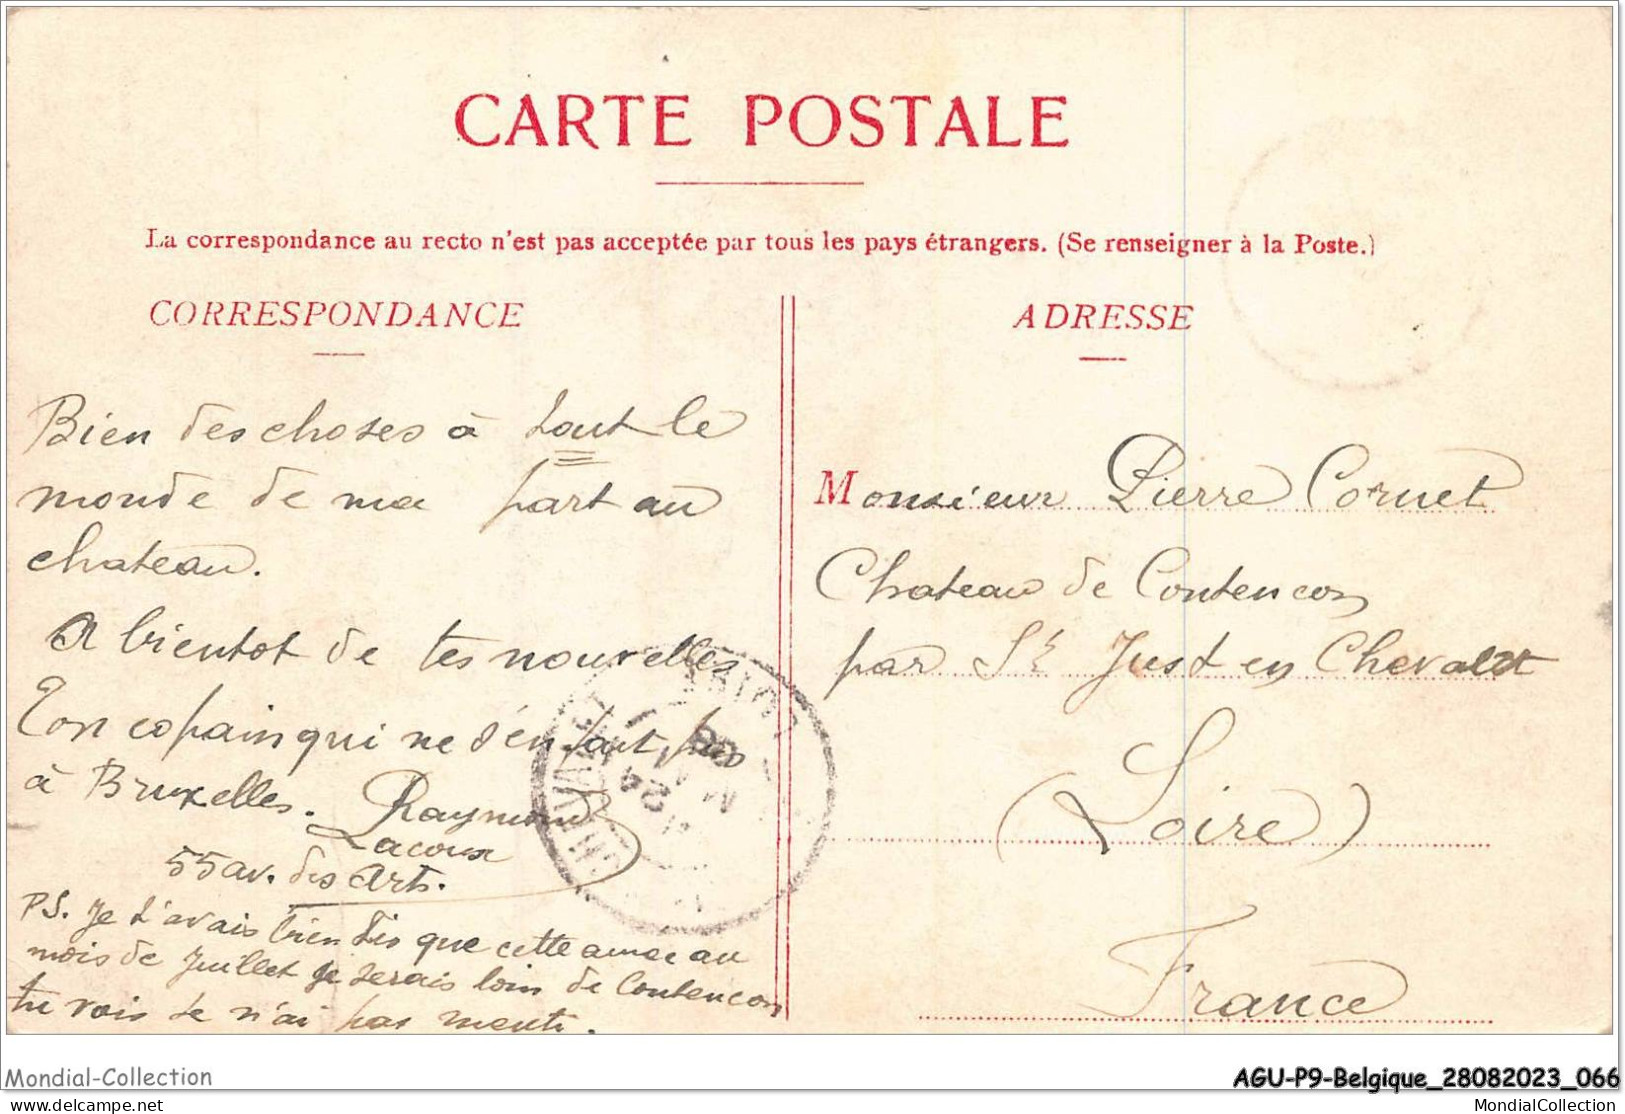 CARTE POSTALE
La correspondance au recto n'est pas acceptée par tous les pays étrangers. (Se renseigner à la Poste.)
CORRESPONDANCE
Bien des choses à tout le
monde de ma part au
chateau.
A bientot de tes nouvelles
Ton copain qui ne s'en fait pas
à Bruxelles. Raymond
Lacoux
55 av. des Arts.
PS. Je t'avais bien dis que cette annee au
mois de Juillet je serais loin de Contencon
tu vois je n'ai pas menti.
ADRESSE
Monsieur Pierre Cornet
Chateau de Contencon
par St Just en Chevalet
(Loire)
France
LOIRE
24
Mondial-Collection
www.delcampe.net
AGU-P9-Belgique_28082023_066
MondialCollection